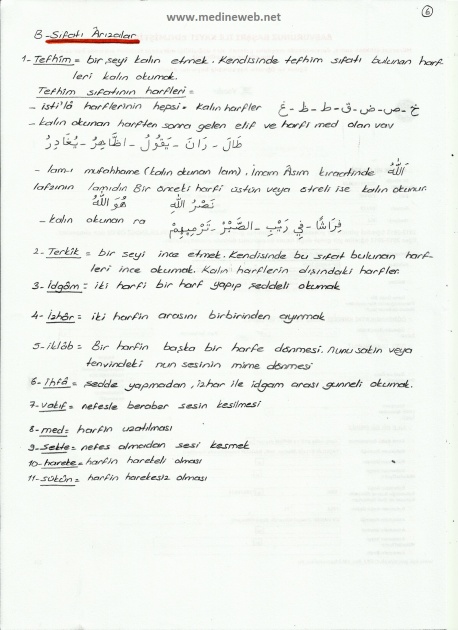 www.medineweb.net
6
B-Sıfatı Ârızalar
1- Tefhîm = bir şeyi kalın etmek. Kendisinde tefhim sıfatı bulunan harf
leri kalın okumak.
Tefhim sıfatının harfleri =
- isti'lâ harflerinin hepsi = kalın harfler خ - ص - ض - ق - ط - ظ - غ
- kalın okunan harften sonra gelen elif ve harfi med olan vav
طَالَ - رَانَ - يَقُولُ - اظَّاهِرُ - يُغَادِرُ
- lam-ı mufahhame (kalın okunan lam). İmam Âsım kıraatinde اَللّٰهُ
lafzının lamıdır. Bir önceki harfi üstün veya ötreli ise kalın okunur.
نَصْرُ اللّٰهِ هُوَ اللّٰهُ
- kalın okunan ra فِرَاشًا - فِي رَيْبٍ - الصَّبْرُ - تَرْمِيهِمْ
2- Terkîk = bir şeyi ince etmek. Kendisinde bu sıfat bulunan harf-
leri ince okumak. Kalın harflerin dışındaki harfler.
3- İdgâm = iki harfi bir harf yapıp şeddeli okumak
4- İzhâr = iki harfin arasını birbirinden ayırmak
5- iklâb = Bir harfin başka bir harfe dönmesi. Nunu sakin veya
tenvindeki nun sesinin mime dönmesi
6- ihfâ = şedde yapmadan, izhar ile idgam arası gunneli okumak.
7- vakıf = nefesle beraber sesin kesilmesi
8- med = harfin uzatılması
9- sekte = nefes almadan sesi kesmek
10- hareke = harfin harekeli olması
11- sükûn = harfin harekesiz olması